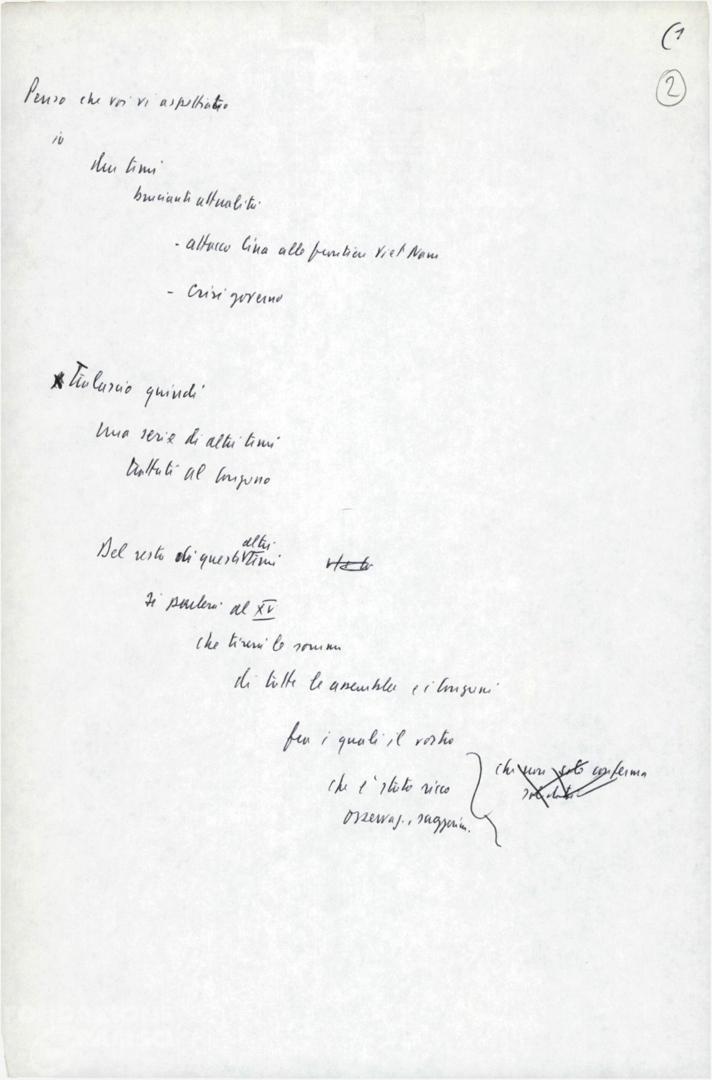 (1
2
Penso che voi vi aspettiate
io
due temi
brucianti attualità
- attacco Cina alle frontiere Viet Nam
- Crisi governo
x Tralascio quindi
una serie di altri temi
trattati al Congresso
altri
Del resto di questi temi
si parlerà al XV
che tirerà le somme
di tutte le assemblee e i Congressi
fra i quali il vostro
che è stato ricco
osservaz., suggerim.
che non solo conferma